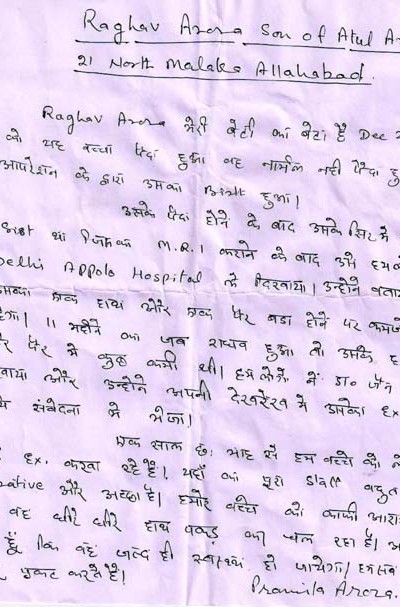 Raghav Arora Son of Atul A
21 North Malaka Allahabad.
Raghav Arora मेरी बेटी का बेटा है Dec
को यह बच्चा पैदा हुआ वह नार्मल नही पैदा हु
आपरेशन के द्वारा उसका Birth हुआ।
उसके पैदा होने के बाद उसके सिर में
था जिसका M.R.I कराने के बाद
Delhi Appolo Hospital में दिखाया। उन्होंने बता
एक हाथ और एक पैर बडा होने पर कमजो
11 महीने का जब राघव हुआ तो उसके ह
पैर मे कुछ कमी थी। हम लोगों ने डा० जैन
और उन्होने अपनी देखरेख मे उसका Ex
संवेदना मे भेजा।
एक साल छः माह से हम बच्चे को
Ex. करवा रहे है। यहाँ का पूरा Staff बहुत
rative और अच्छा है। हमारे बच्चे को काफी आरा
वह धीरे धीरे हाथ पकड़ कर चल रहा है।
हूँ कि वह जल्द ही स्वस्थ्य हो जायेगा। हम सब
प्रकट करते है।
Pramila Arora.